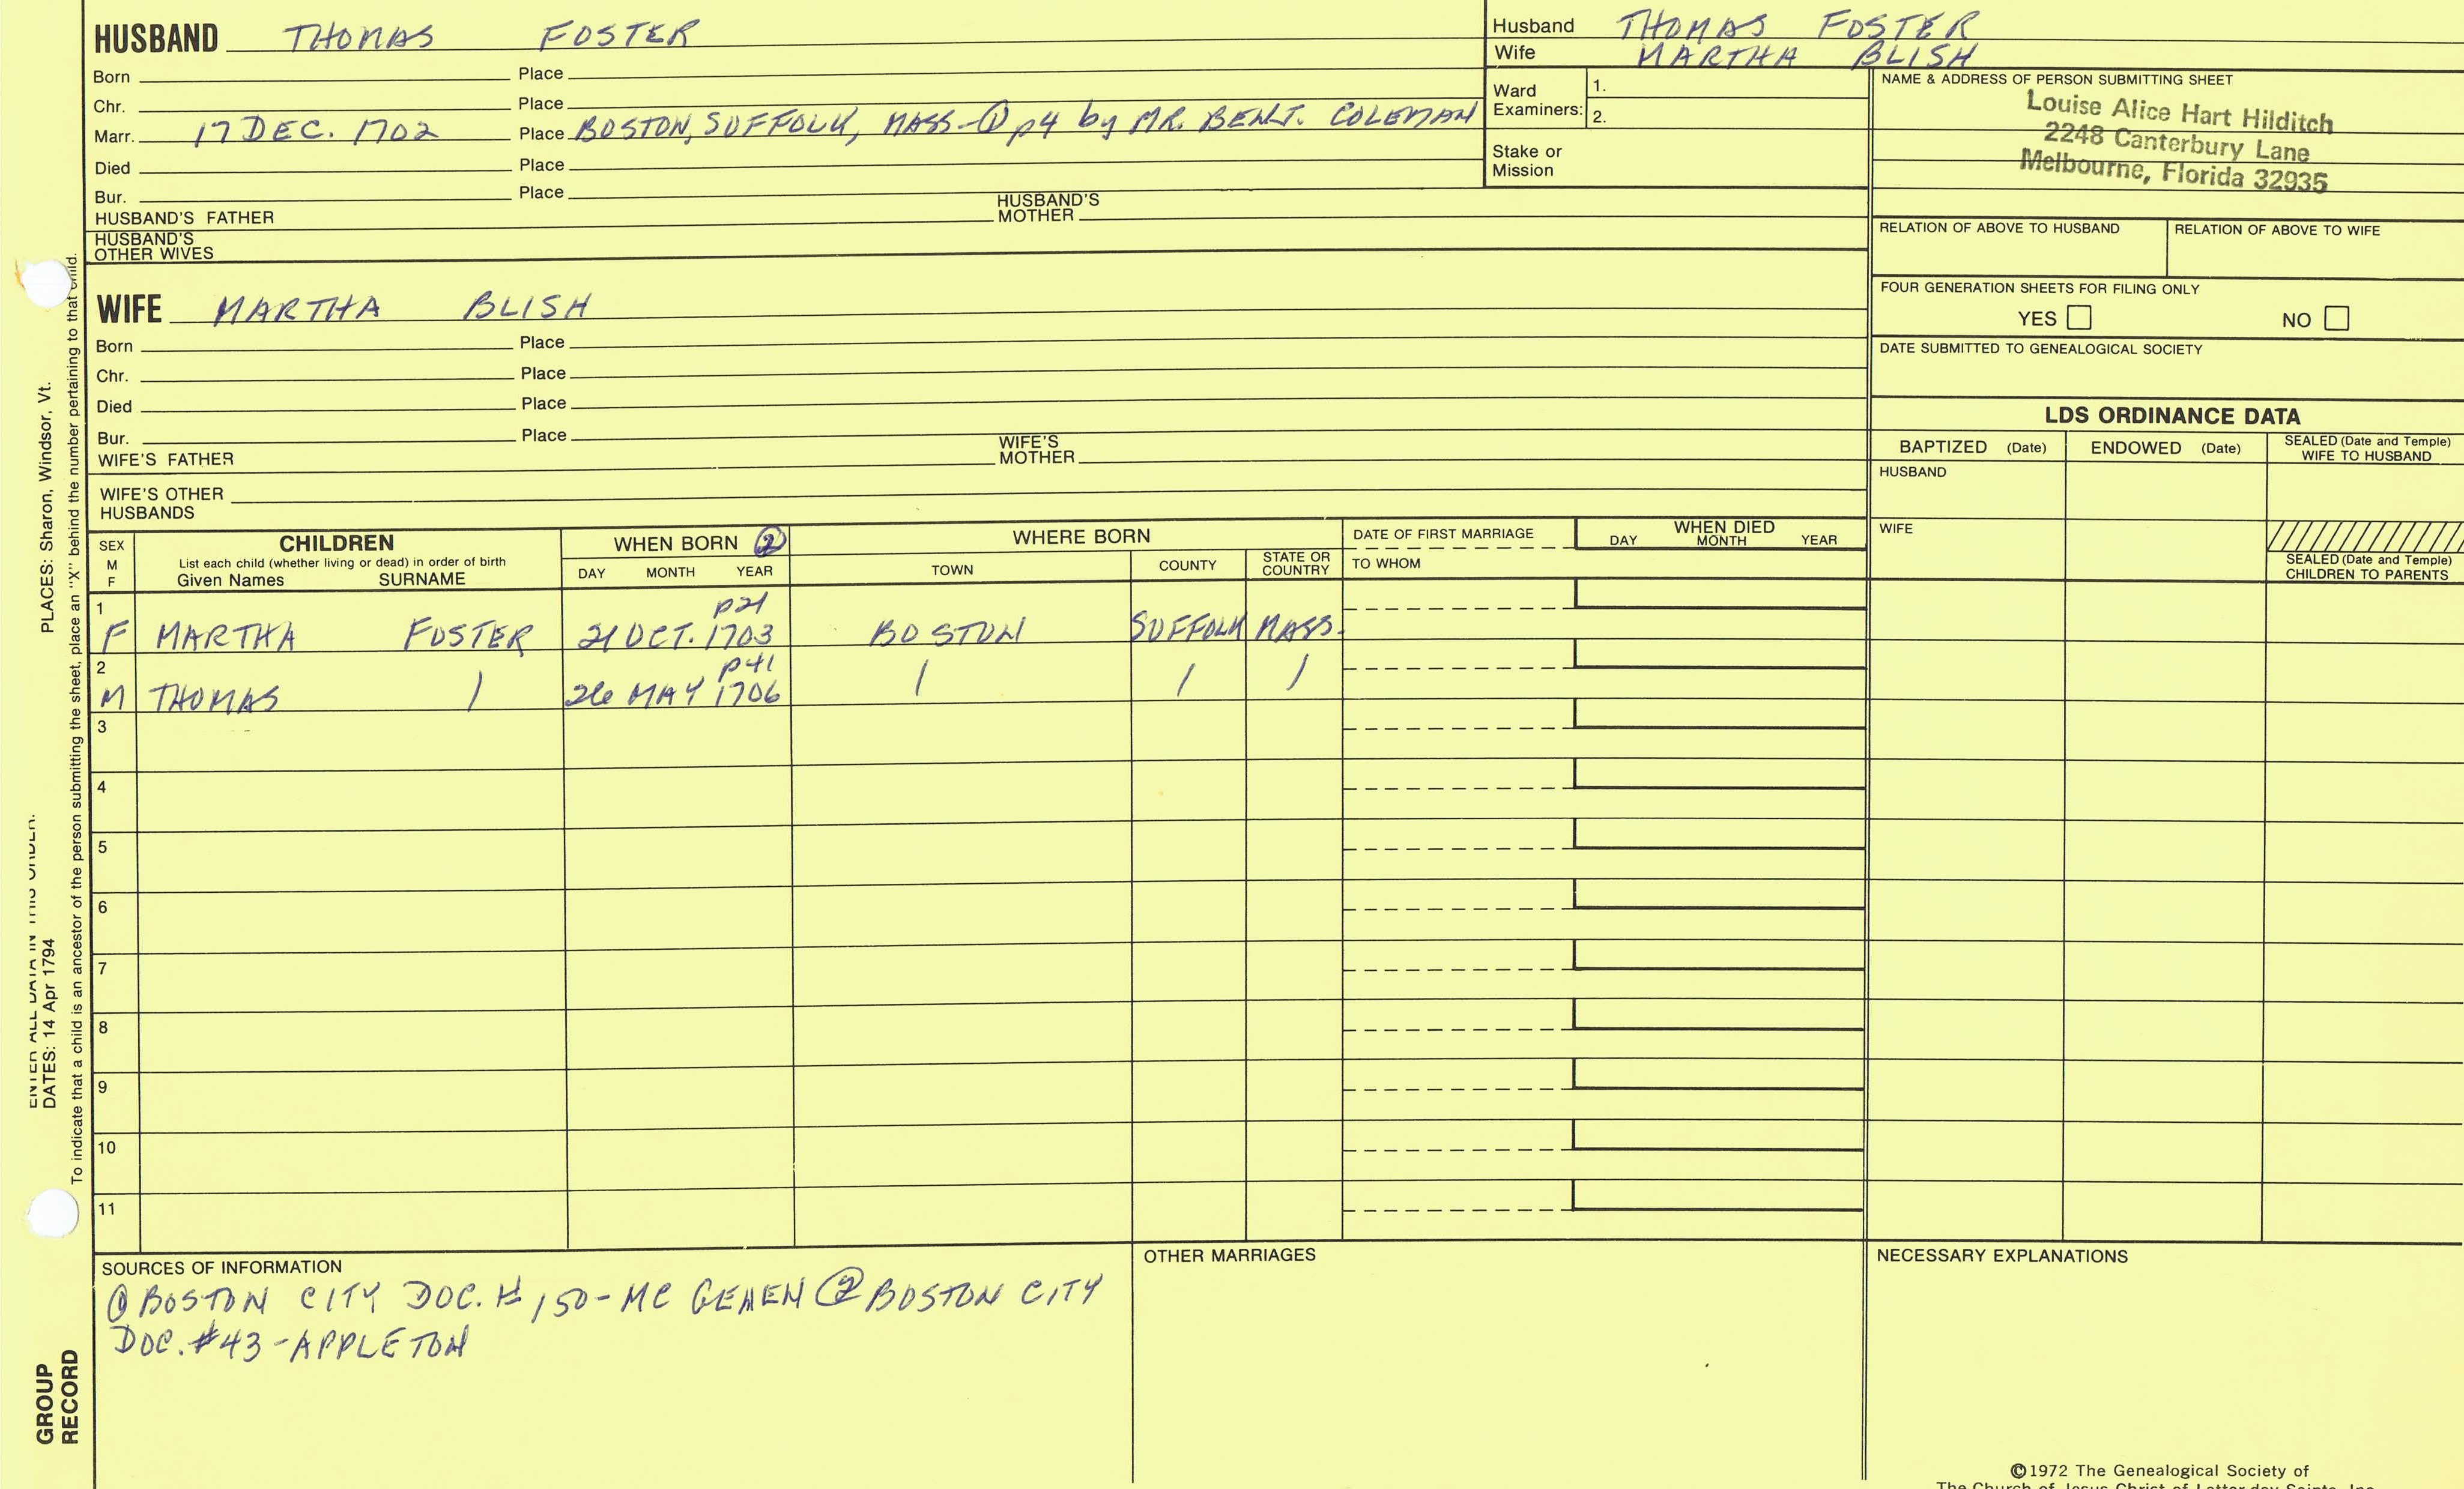 HUSBAND THOMAS FOSTER
Born Place
Chr. Place
Marr. 17 DEC. 1702 Place BOSTON, SUFFOLK, MASS-① p4 by MR. BENJ. COLEMAN
Died Place
Bur. Place
HUSBAND'S FATHER HUSBAND'S MOTHER
HUSBAND'S OTHER WIVES
Husband THOMAS FOSTER
Wife MARTHA BLISH
Ward Examiners: 1.
2.
Stake or Mission
NAME & ADDRESS OF PERSON SUBMITTING SHEET
Louise Alice Hart Hilditch
2248 Canterbury Lane
Melbourne, Florida 32935
RELATION OF ABOVE TO HUSBAND RELATION OF ABOVE TO WIFE
FOUR GENERATION SHEETS FOR FILING ONLY
YES NO
DATE SUBMITTED TO GENEALOGICAL SOCIETY
WIFE MARTHA BLISH
Born Place
Chr. Place
Died Place
Bur. Place
WIFE'S FATHER WIFE'S MOTHER
WIFE'S OTHER HUSBANDS
LDS ORDINANCE DATA
BAPTIZED (Date) ENDOWED (Date) SEALED (Date and Temple) WIFE TO HUSBAND
HUSBAND
WIFE
SEALED (Date and Temple) CHILDREN TO PARENTS
SEX M F
CHILDREN
List each child (whether living or dead) in order of birth
Given Names SURNAME
WHEN BORN ②
DAY MONTH YEAR
WHERE BORN
TOWN COUNTY STATE OR COUNTRY
DATE OF FIRST MARRIAGE
TO WHOM
WHEN DIED
DAY MONTH YEAR
1 p21
F MARTHA FOSTER 21 OCT. 1703 BOSTON SUFFOLK MASS.
2 p41
M THOMAS / 26 MAY 1706 / / /
3
4
5
6
7
8
9
10
11
SOURCES OF INFORMATION
① BOSTON CITY DOC. # 150-MC GEHEN ② BOSTON CITY
DOC. #43-APPLETON
OTHER MARRIAGES
NECESSARY EXPLANATIONS
©1972 The Genealogical Society of
The Church of Jesus Christ of Latter-day Saints, Inc.
PLACES: Sharon, Windsor, Vt.
To indicate that a child is an ancestor of the person submitting the sheet, place an "X" behind the number pertaining to that child.
ENTER ALL DATA IN THIS ORDER:
DATES: 14 Apr 1794
GROUP
RECORD